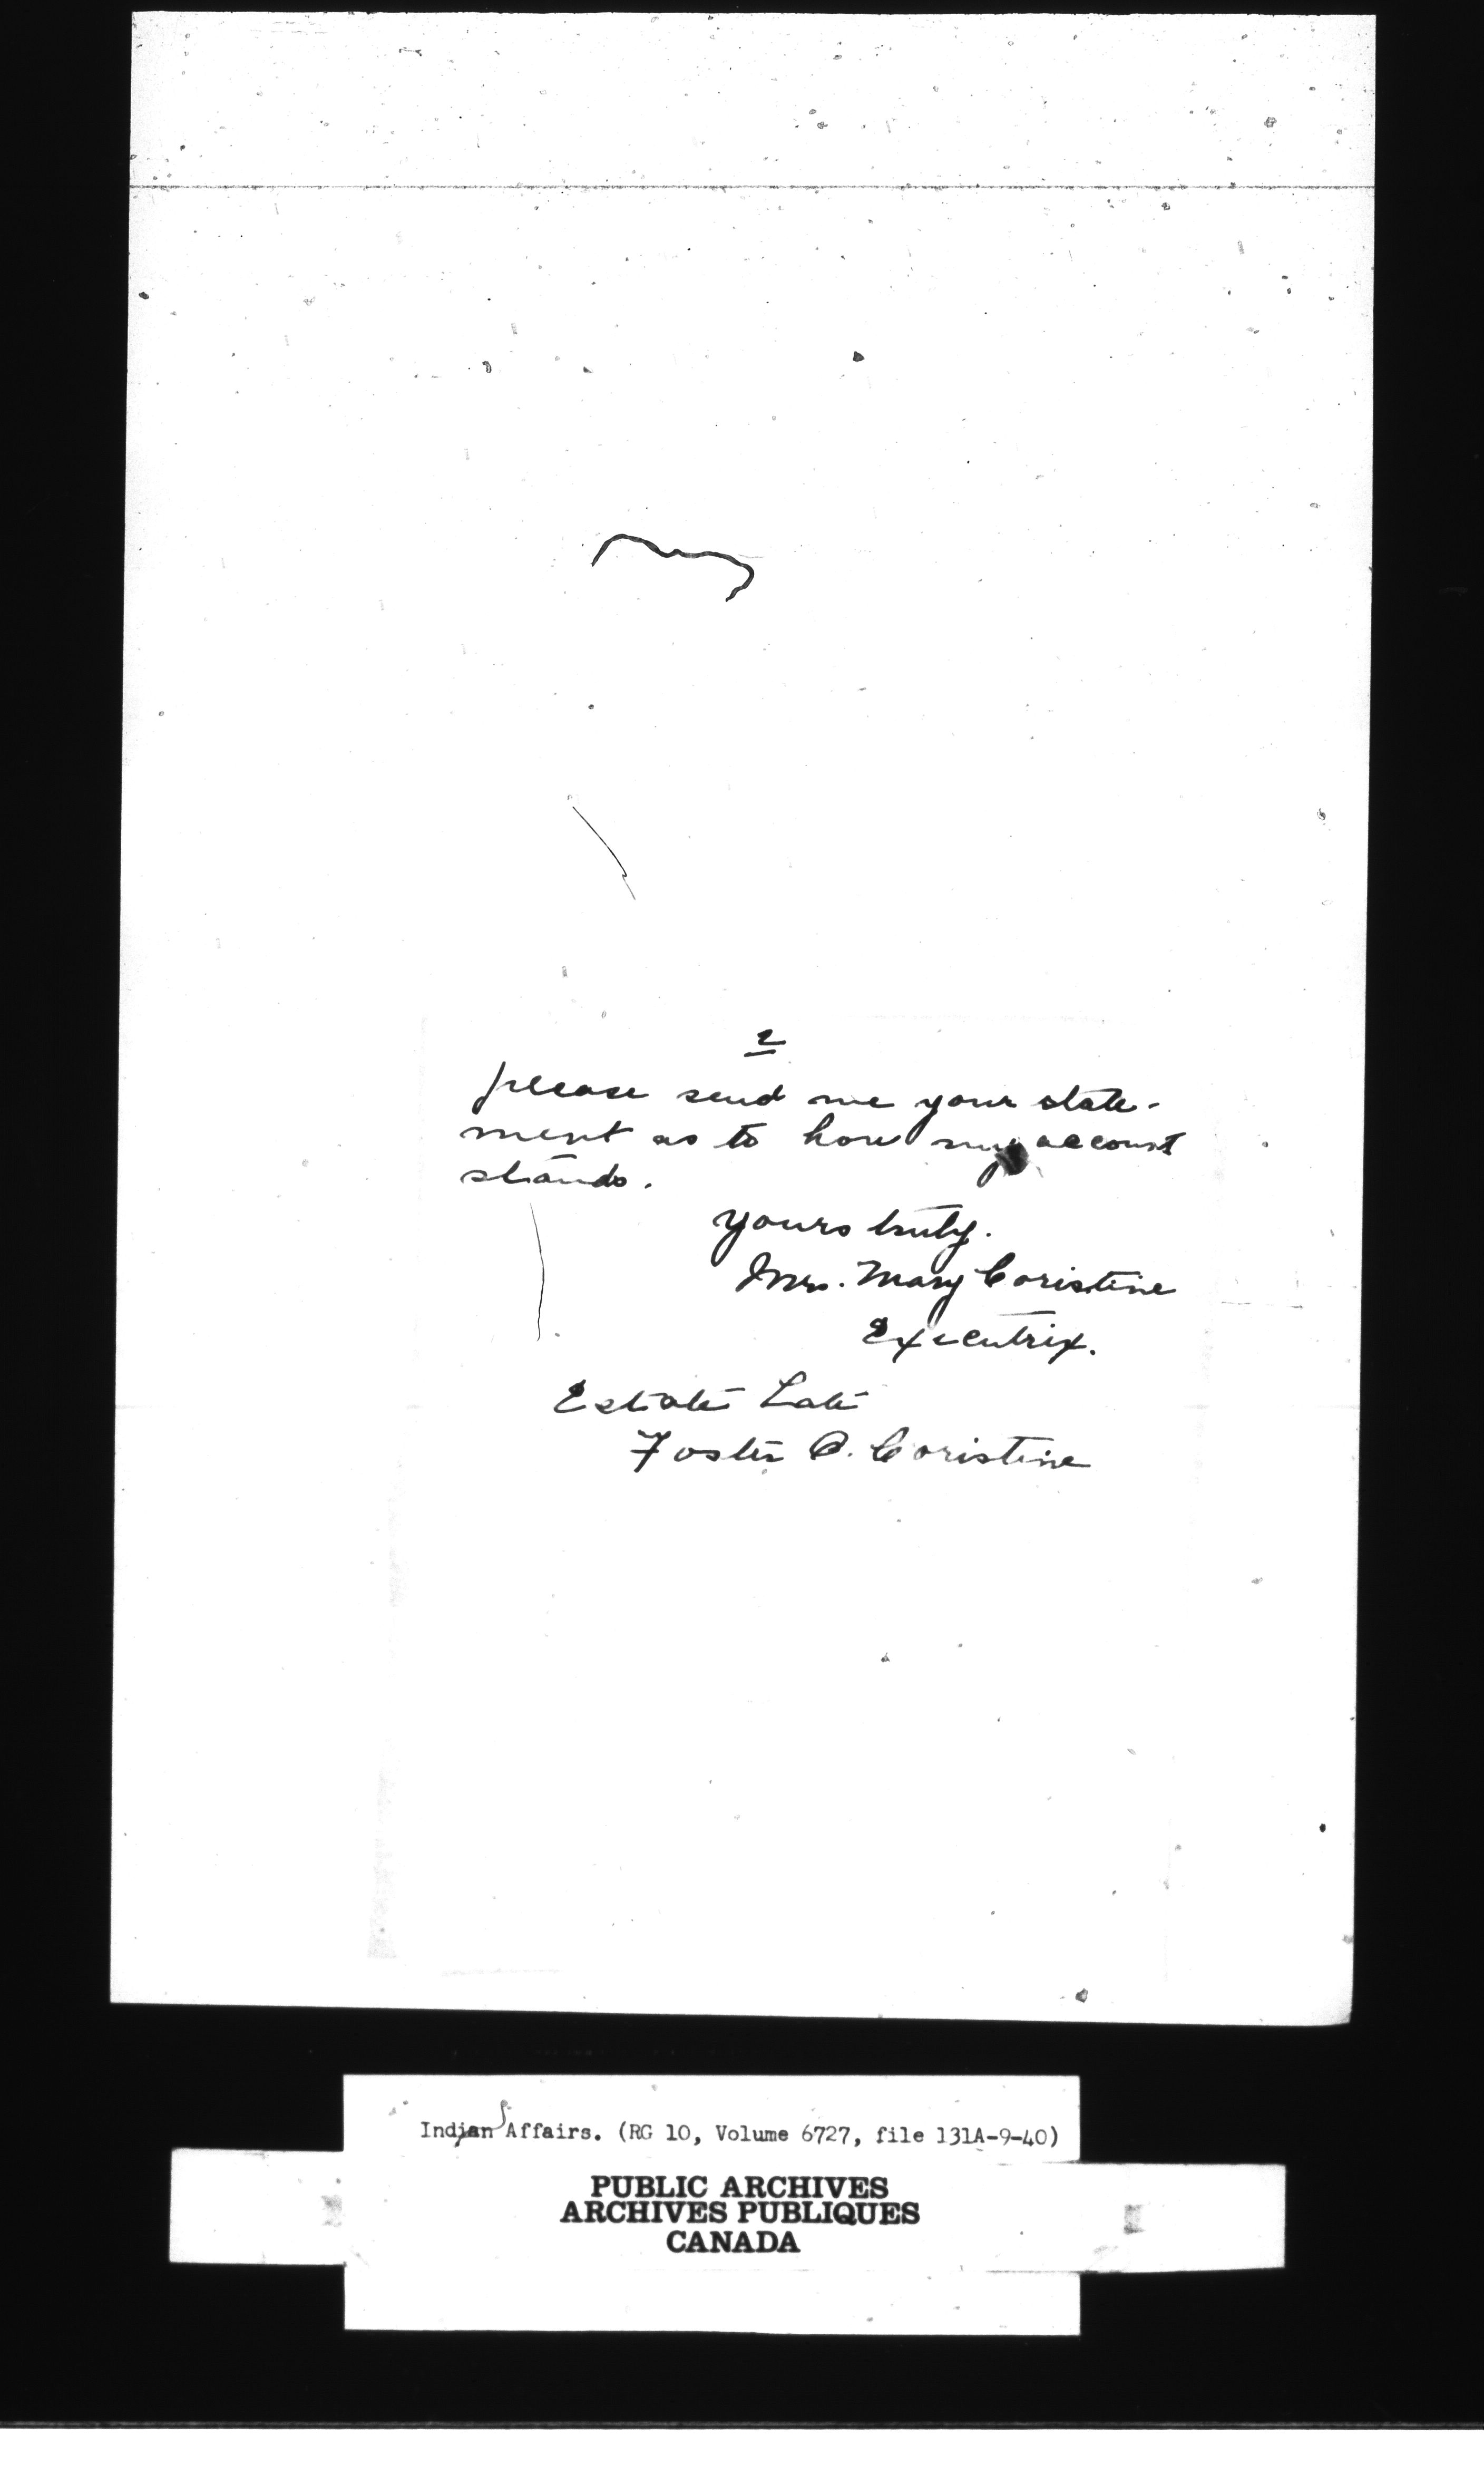 2
please send me your state-
ment as to how my account
stands.
Yours truly.
Mrs. Mary Coristine
Executrix.
Estate Late
Foster C. Coristine
Indian Affairs. (RG 10, Volume 6727, file 131A-9-40)
PUBLIC ARCHIVES
ARCHIVES PUBLIQUES
CANADA